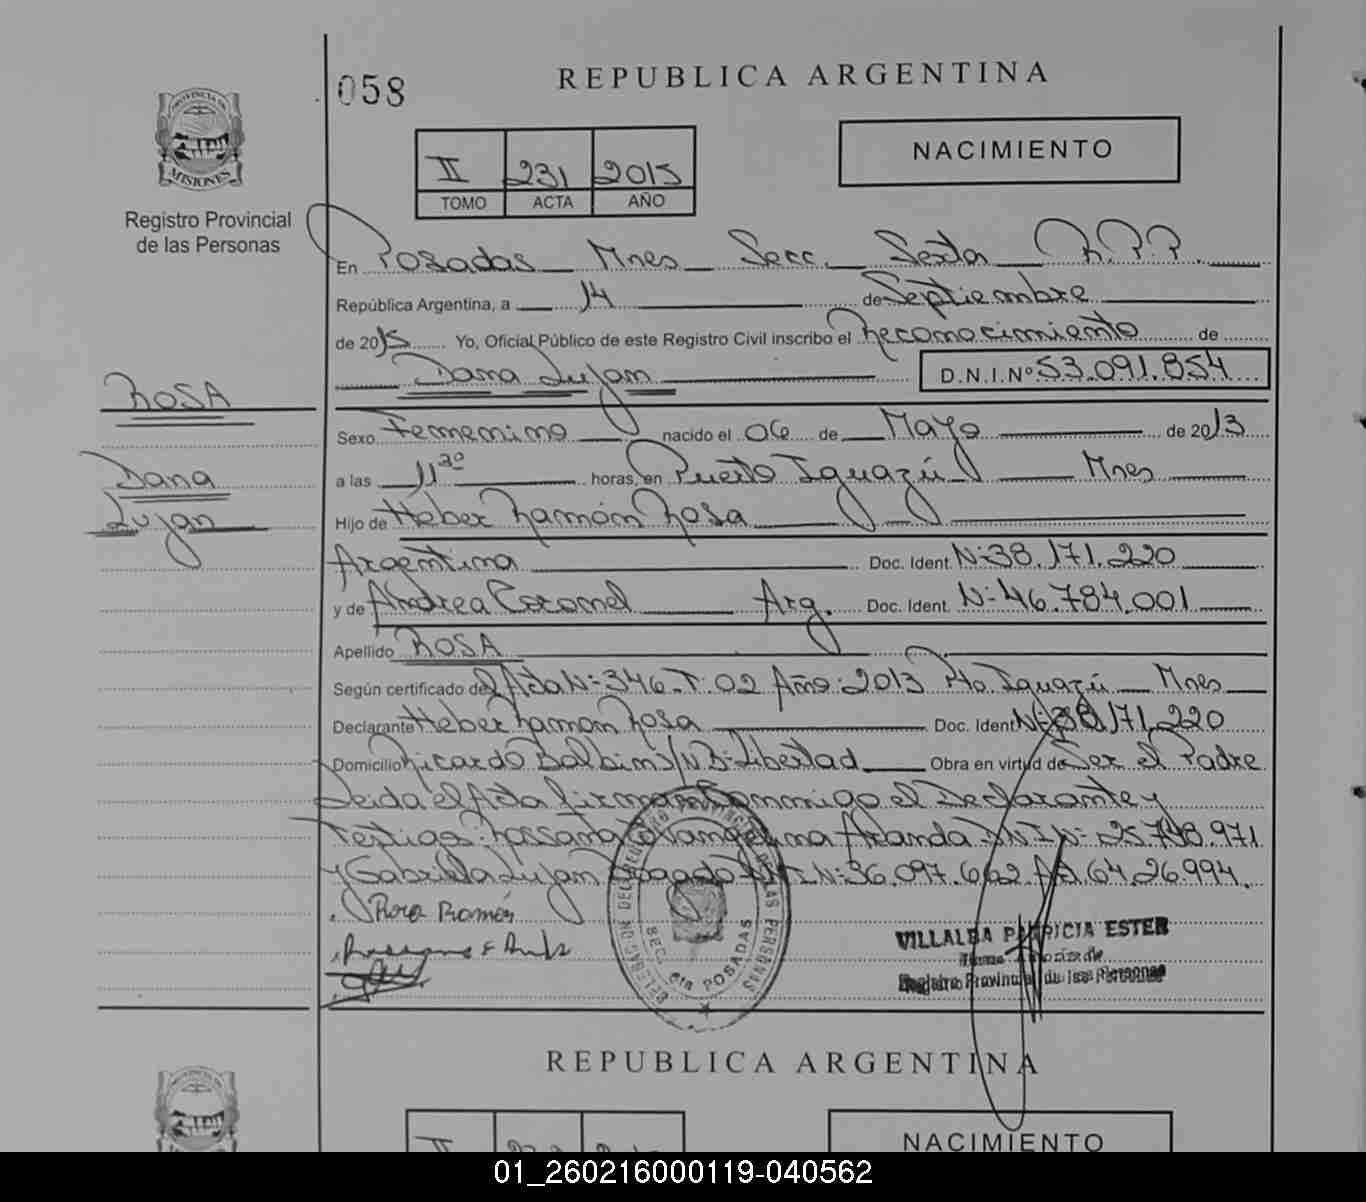 058
REPUBLICA ARGENTINA
PROVINCIA DE
MISIONES
Registro Provincial
de las Personas
II 231 2015
TOMO ACTA AÑO
NACIMIENTO
En Posadas Mnes Secc. Sexta R.P.P.
República Argentina, a 14 de Septiembre
de 2015 Yo, Oficial Público de este Registro Civil inscribo el Reconocimiento de
Dana Lujan D.N.I.Nº 53.091.854
ROSA
Dana
Lujan
Sexo Femenino nacido el 06 de Mayo de 2013
a las 11 30 horas, en Puerto Iguazú Mnes
Hijo de Heber Ramón Rosa
Argentina Doc. Ident. Nº 38.171.220
y de Andrea Coronel Arg. Doc. Ident. Nº 46.784.001
Apellido ROSA
Según certificado de Acta Nº 346 T: 02 Año: 2013 Pto Iguazú Mnes
Declarante Heber Ramon Rosa Doc. Ident. Nº 38.171.220
Domicilio Ricardo Balbin S/N Bº Libertad Obra en virtud de Ser el Padre
Leida el Acta firman Conmigo el Declarante y
Testigos: Rossana Evangelina Aranda D.N.I Nº 25.748.971
y Gabriela Lujan D.N.I Nº 36.097.662 64.26.994.
Rosa Ramón
DELEGACION DEL REGISTRO PROVINCIAL DE LAS PERSONAS
SECC. 6ta POSADAS
VILLALBA PATRICIA ESTER
Registro Provincial de las Personas
REPUBLICA ARGENTINA
II
NACIMIENTO
01_260216000119-040562